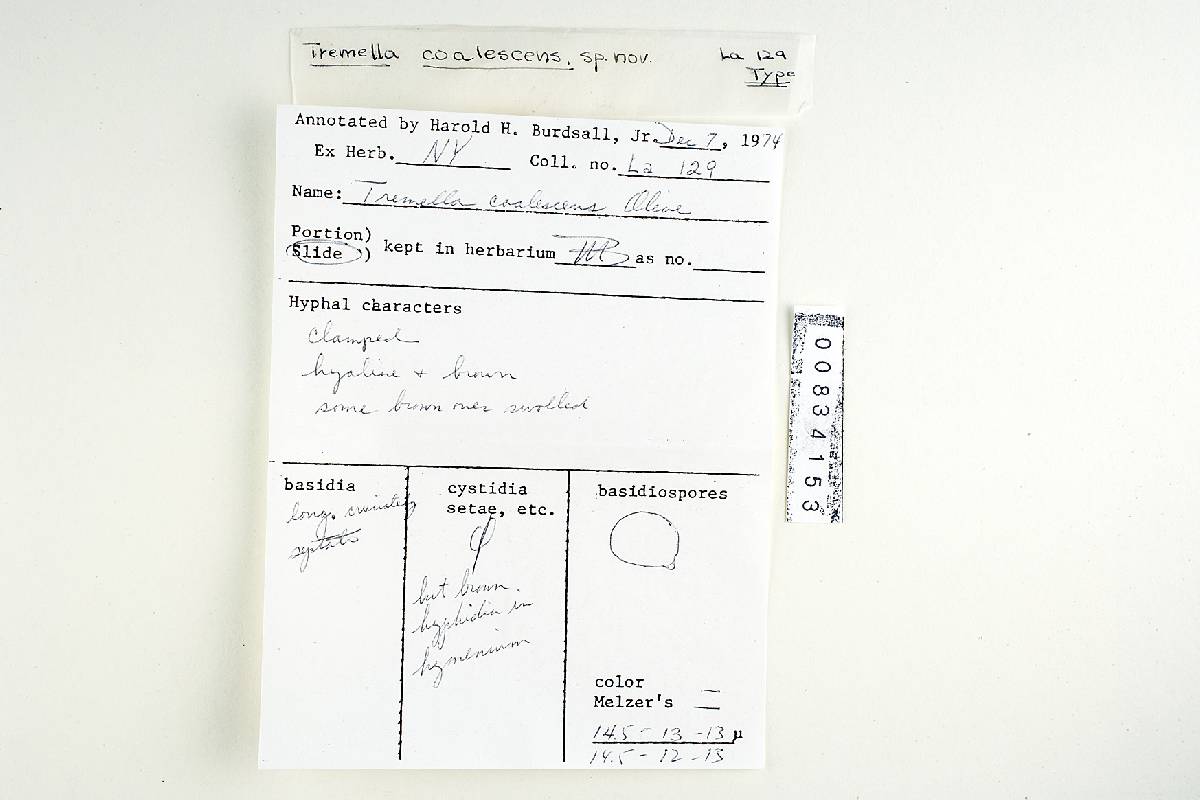 Tremella coalescens, sp. nov. La 129
Type
Annotated by Harold H. Burdsall, Jr. Dec 7, 1974
Ex Herb. NY Coll. no. La 129
Name: Tremella coalescens Olive
Portion)
Slide ) kept in herbarium as no.
Hyphal characters
clamped
hyaline + brown
some brown ones swolled
basidia
long, cruciately
septate
cystidia
setae, etc.
but brown
hyphidia in
hymenium
basidiospores
color —
Melzer's —
14.5 - 13 - 13 µ
14.5 - 12 - 13
00834153